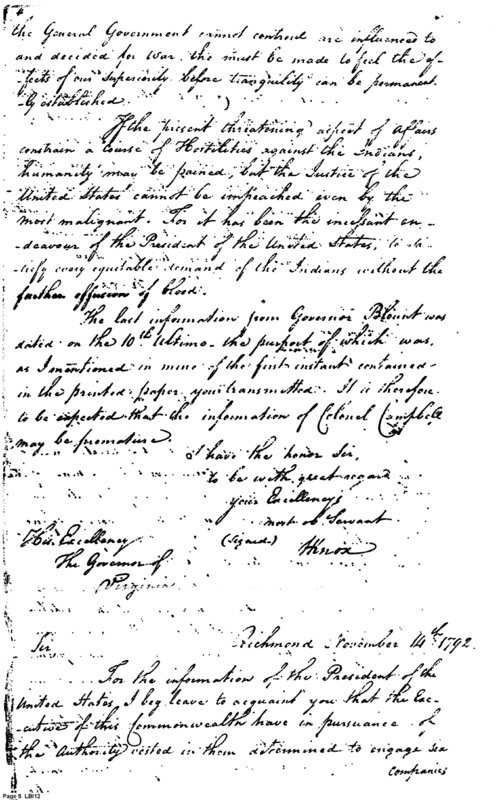 the General Government cannot controul are influenced to
and decided for War, the must be made to feel the ef-
-fects of our superiority before tranquility can be permanent
-ly established.
If the present threatening aspect of Affairs
constrain a course of Hostilities against the Indians,
humanity may be pained, but the Justice of the
United States cannot be impeached even by the
most malignant. For it has been the incessant en-
-deavour of the President of the United States, to sa-
-tisfy every equitable demand of the Indians without the
further effusion of blood.
The last information from Governor Blount was
dated on the 10th Ultimo - the purport of which was,
as I mentioned in mine of the first instant contained
in the printed paper you transmitted. It is therefore
to be expected that the information of Colonel Campbell
may be premature.
I have the honor Sir,
to be with great regard
your Excellency's
most ob Servant
His Excellency (signed) HKnox
The Governor of
Virginia
Richmond November 14th 1792
Sir
For the information of the President of the
United States I beg leave to acquaint you that the Exe-
-cutive of this Commonwealth have in pursuance of
the Authority vested in them determined to engage six
companies
Page 5 LBI12